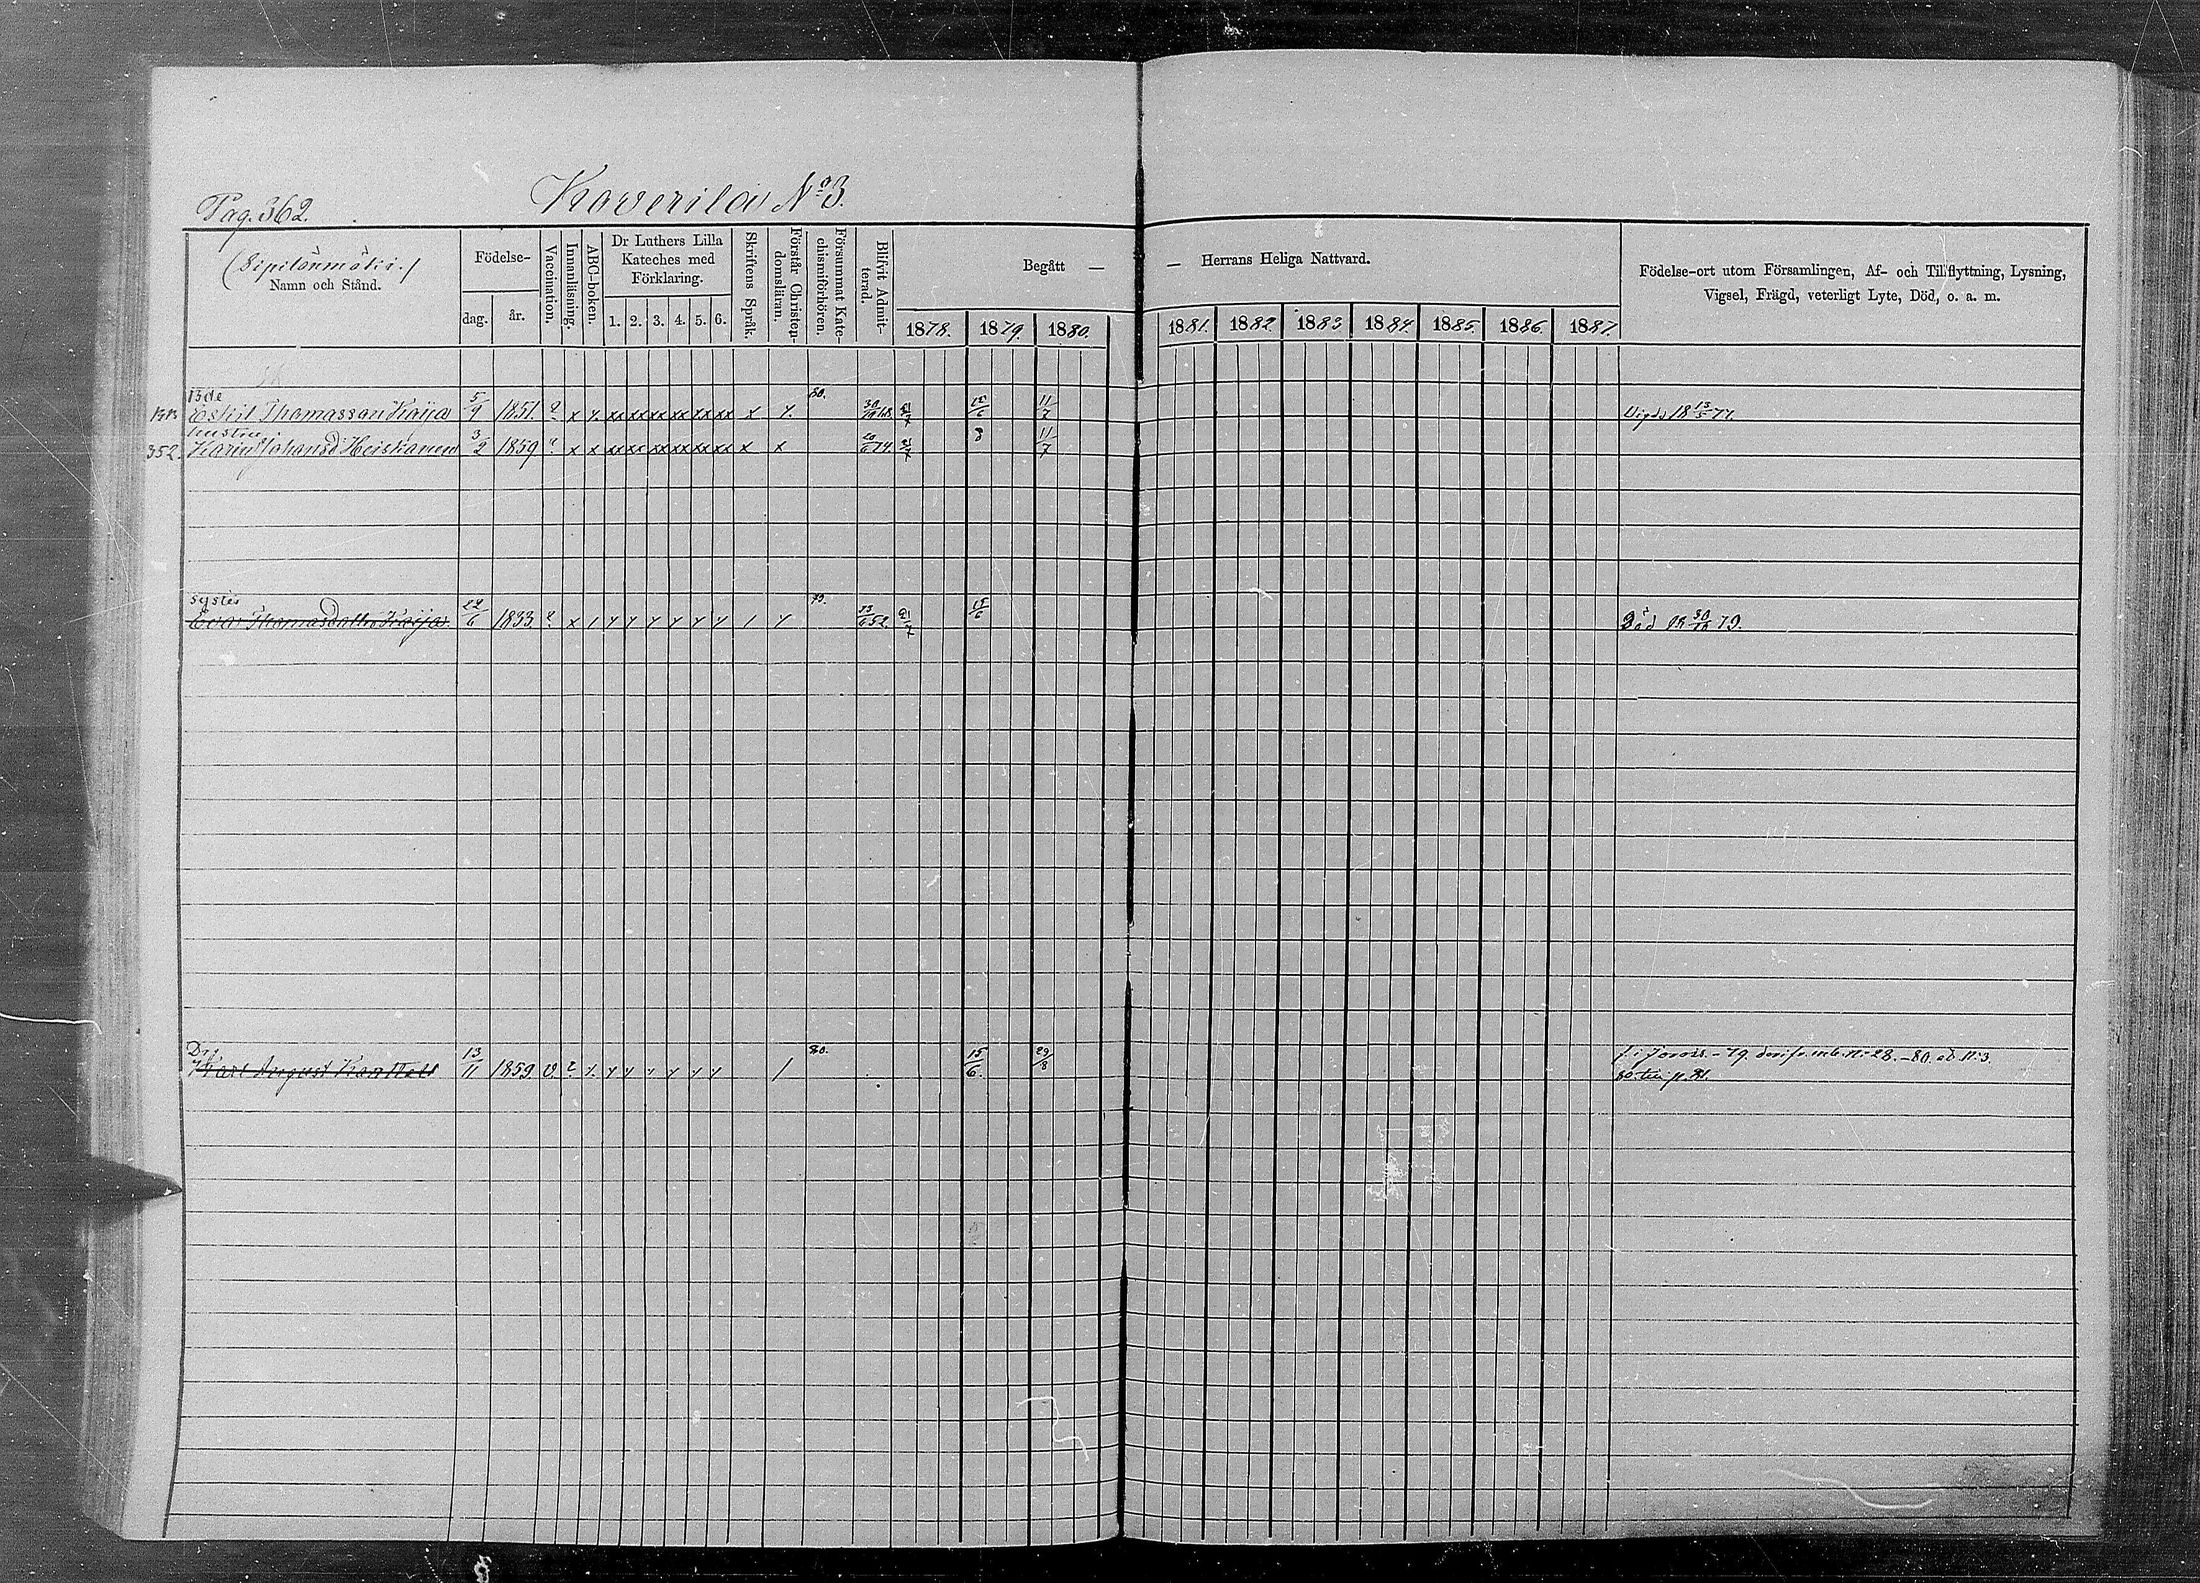 Pag. 362.
Kaverila No 3.
(Sipilänmäki.)
Namn och Stånd.
Födelse-
dag.
år.
Vaccination.
Innanläsning.
ABC-boken.
Dr Luthers Lilla
Kateches med
Förklaring.
1. 2. 3. 4. 5. 6.
Skriftens Språk.
Förstår Christen-
domsläran.
Försummat Kate-
chismiförhören.
Blifvit Admit-
terad.
Begått —
1878. 1879. 1880.
— Herrans Heliga Nattvard.
1881. 1882 1883. 1884. 1885. 1886. 1887.
Födelse-ort utom Församlingen, Af- och Tillflyttning, Lysning,
Vigsel, Frägd, veterligt Lyte, Död, o. a. m.
Bde 80.
Eskil Thomasson Kaija 5/9 1851. ? x x xx xx xx xx xx xx x x 21/7 15/6 11/7 Vigd 18 13/5 77.
hustru
352. Karin Johansd Heiskanen 3/2 1859 ? x x xx xx xx xx xx xx x x 20/6 74. 21/7 11/7
syster 79.
Eva Thomasdotter Kaija 22/6 1833. ? x 1 y y y y y y 1 y 13/6 52. 21/7 15/6 Död 18 30/10 79.
Dr. 80.
Karl August 13/11 1859. v. ? 15/6. 29/8